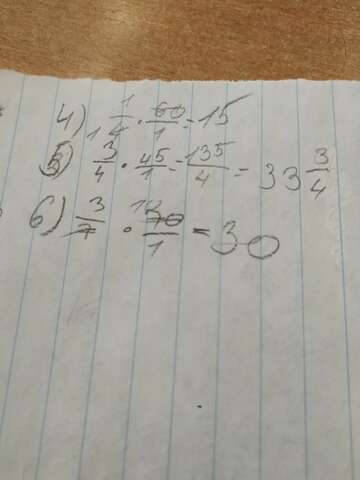 4) 1/4 · 60/1 = 15
5) 3/4 · 45/1 = 135/4 = 33 3/4
6) 3/7 · 70/1 = 30